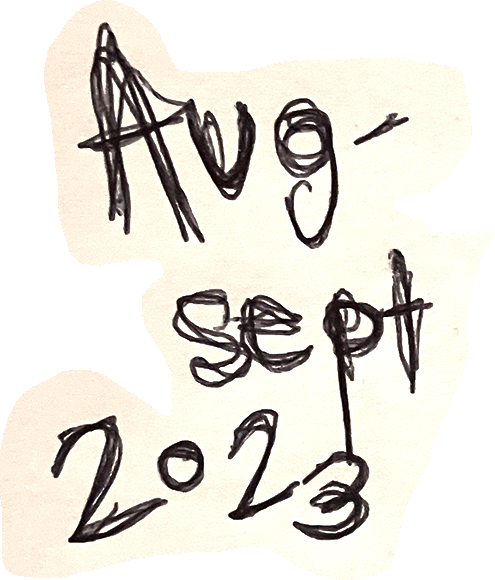 Aug-
sept
2023